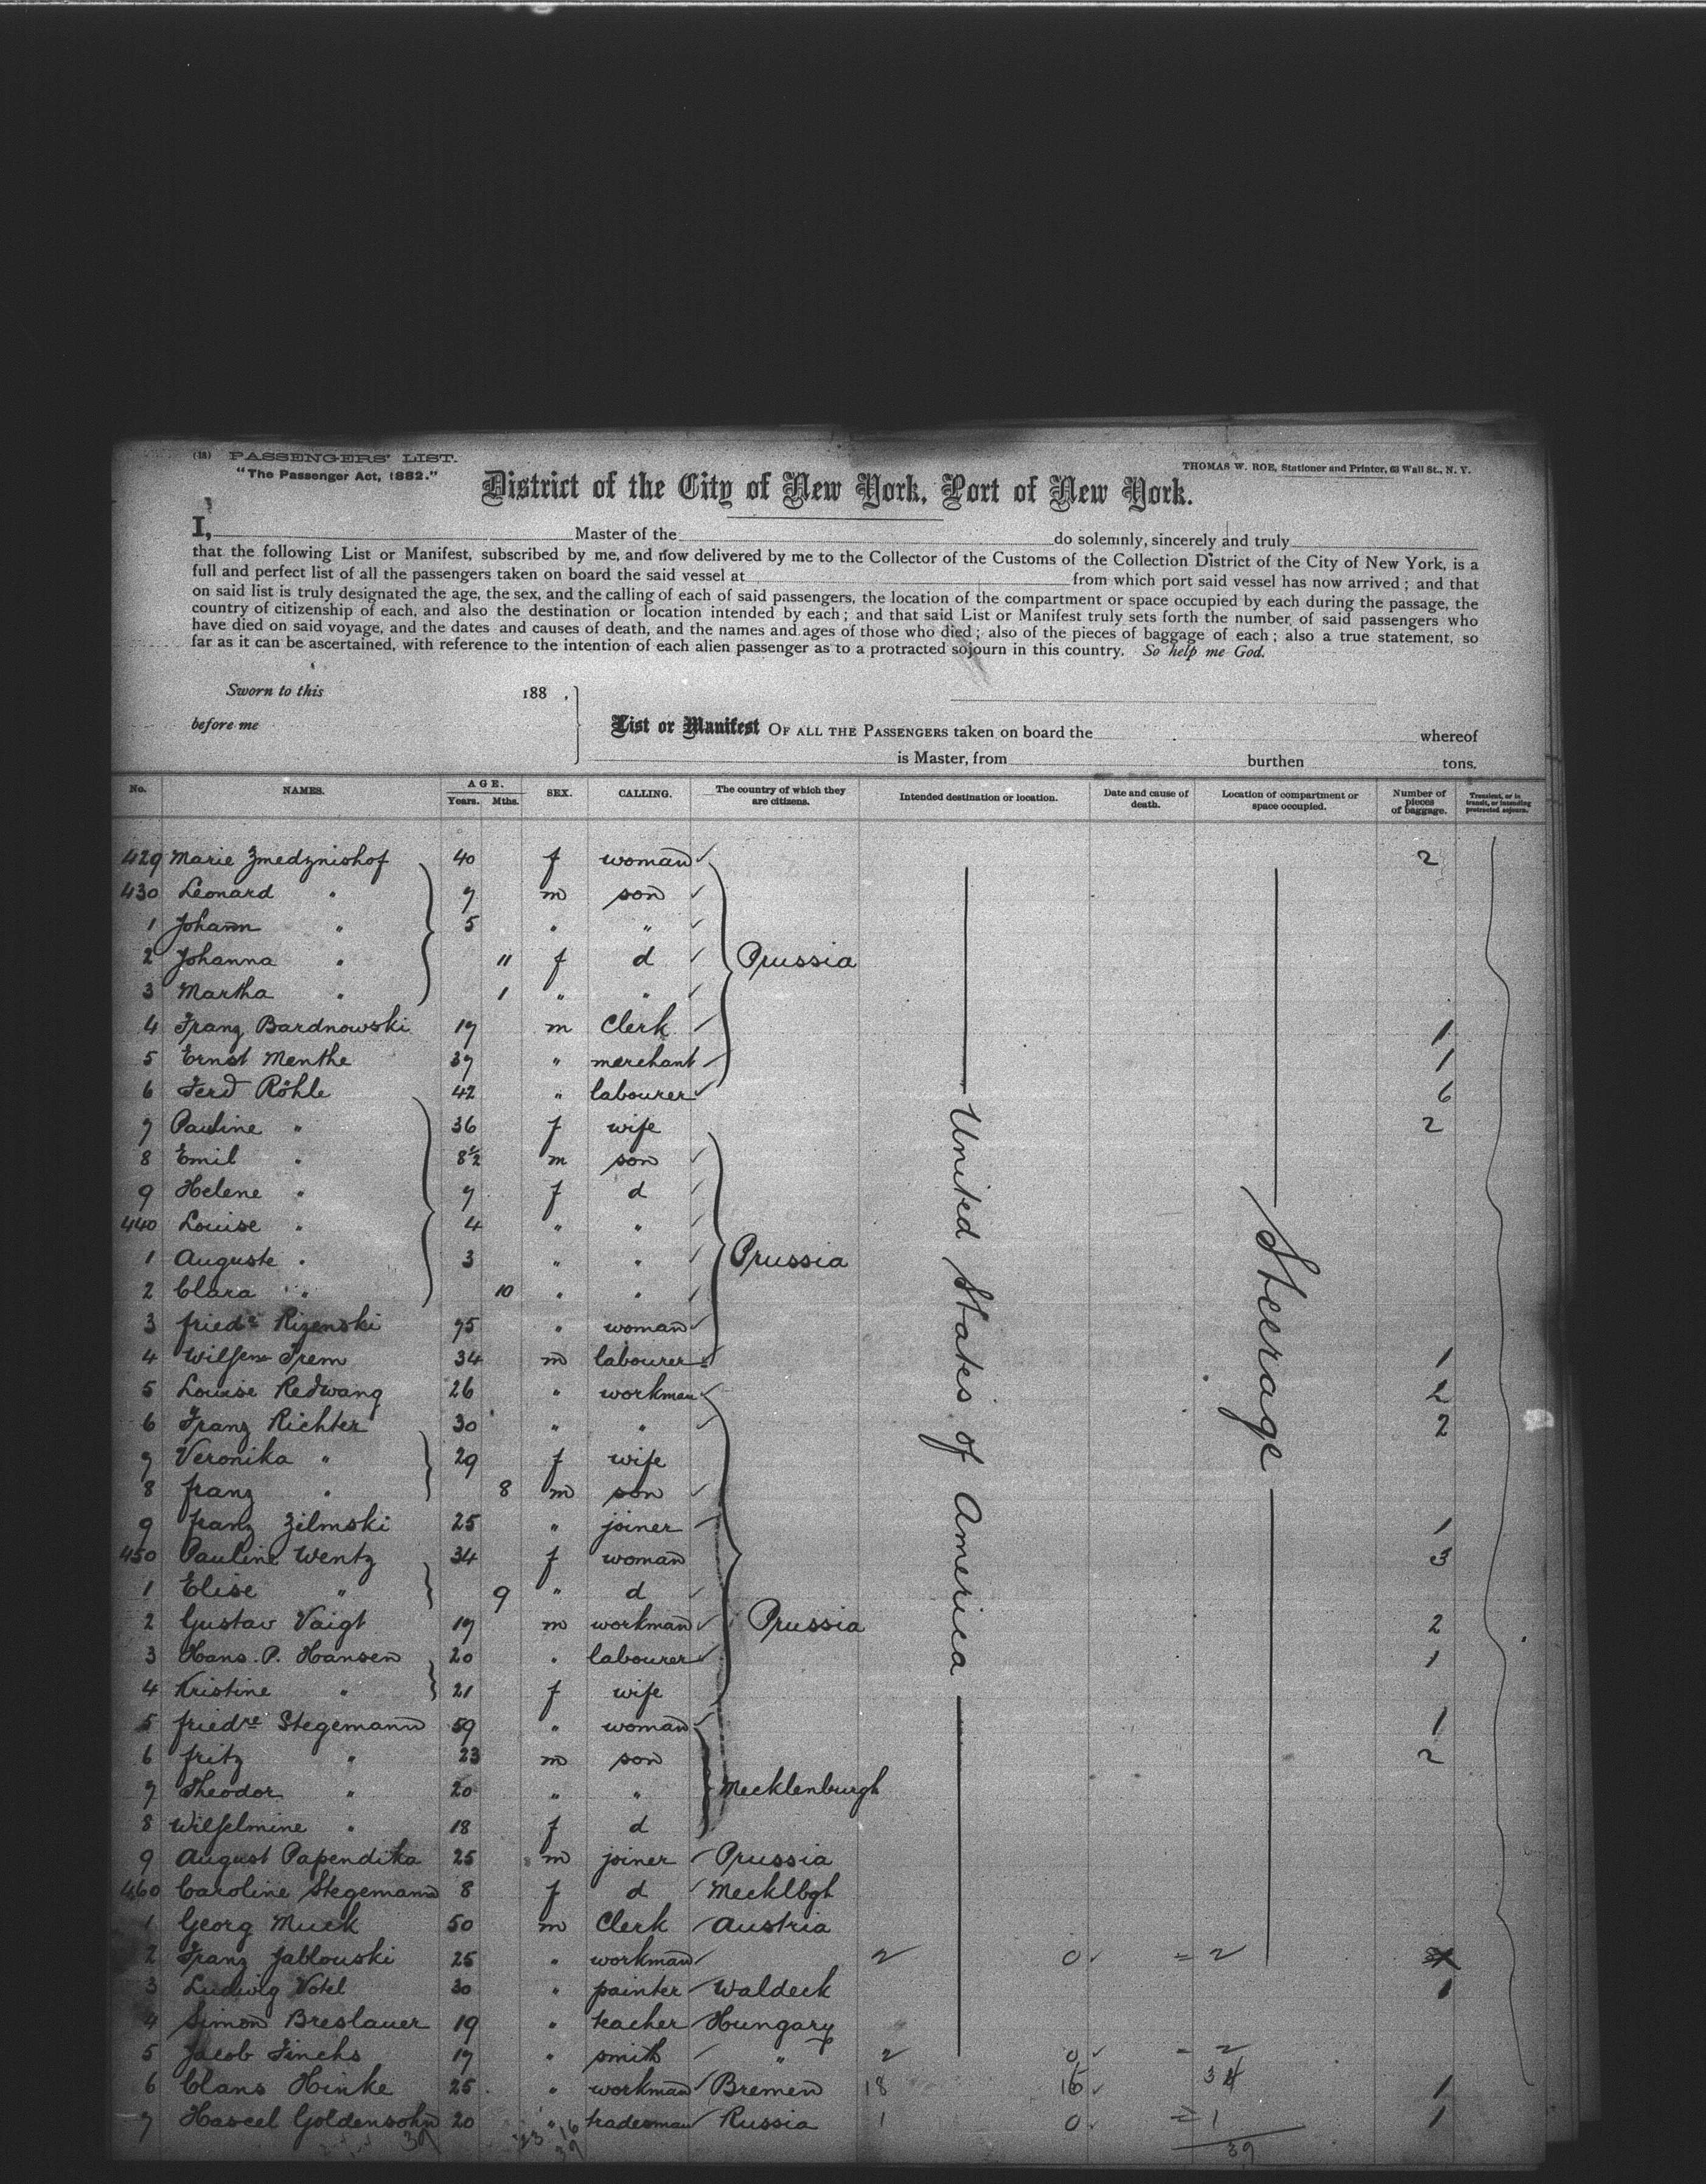 (18) PASSENGERS' LIST.
"The Passenger Act, 1882."
THOMAS W. ROE, Stationer and Printer, 63 Wall St., N. Y.
District of the City of New York, Port of New York.
I, Master of the do solemnly, sincerely and truly
that the following List or Manifest, subscribed by me, and now delivered by me to the Collector of the Customs of the Collection District of the City of New York, is a
full and perfect list of all the passengers taken on board the said vessel at from which port said vessel has now arrived; and that
on said list is truly designated the age, the sex, and the calling of each of said passengers, the location of the compartment or space occupied by each during the passage, the
country of citizenship of each, and also the destination or location intended by each; and that said List or Manifest truly sets forth the number of said passengers who
have died on said voyage, and the dates and causes of death, and the names and ages of those who died; also of the pieces of baggage of each; also a true statement, so
far as it can be ascertained, with reference to the intention of each alien passenger as to a protracted sojourn in this country. So help me God.
Sworn to this 188 .
before me
List or Manifest OF ALL THE PASSENGERS taken on board the whereof
is Master, from burthen tons.
No. NAMES. AGE. Years. Mths. SEX. CALLING. The country of which they are citizens. Intended destination or location. Date and cause of death. Location of compartment or space occupied. Number of pieces of baggage. Transient, or in transit, or intending protracted sojourn.
429 Marie Zmedznishof 40 f woman 2
430 Leonard " 7 m son
1 Johann " 5 " "
2 Johanna " 11 f d Prussia
3 Martha " 1 " "
4 Franz Bardnowski 17 m Clerk 1
5 Ernst Menthe 37 " merchant 1
6 Ferd Röhle 42 " labourer 6
7 Pauline " 36 f wife 2
8 Emil " 8½ m son
9 Helene " 7 f d
440 Louise " 4 " "
1 Auguste " 3 " " Prussia
2 Clara " 10 " "
3 Friedre Rizenski 75 " woman
4 Wilhm Trem 34 m labourer 1
5 Louise Redwang 26 " workman 2
6 Franz Richter 30 " " 2
7 Veronika " 29 f wife
8 Franz " 8 m son
9 Franz Zilmski 25 " joiner 1
450 Pauline Wentz 34 f woman 3
1 Elise " 9 " d
2 Gustav Vaigt 17 m workman Prussia 2
3 Hans. P. Hansen 20 " labourer 1
4 Kristine " 21 f wife
5 Friedre Stegemann 59 " woman 1
6 Fritz " 23 m son 2
7 Theodor " 20 " " Mecklenburgh
8 Wilhelmine " 18 f d
9 August Papendika 25 m joiner Prussia
460 Caroline Stegemann 8 f d Mecklbgh
1 Georg Muck 50 m Clerk Austria
2 Franz Jablouski 25 " workman 2 0 = 2
3 Ludwig Votel 30 " painter Waldeck 1
4 Simon Breslauer 19 " teacher Hungary
5 Jacob Finchs 17 " smith " 2 0 = 2
6 Clans Hinke 25 " workman Bremen 18 16 34 1
7 Hascel Goldensohn 20 " tradesman Russia 1 0 = 1 1
39 23 16 39 39
United States of America
Steerage